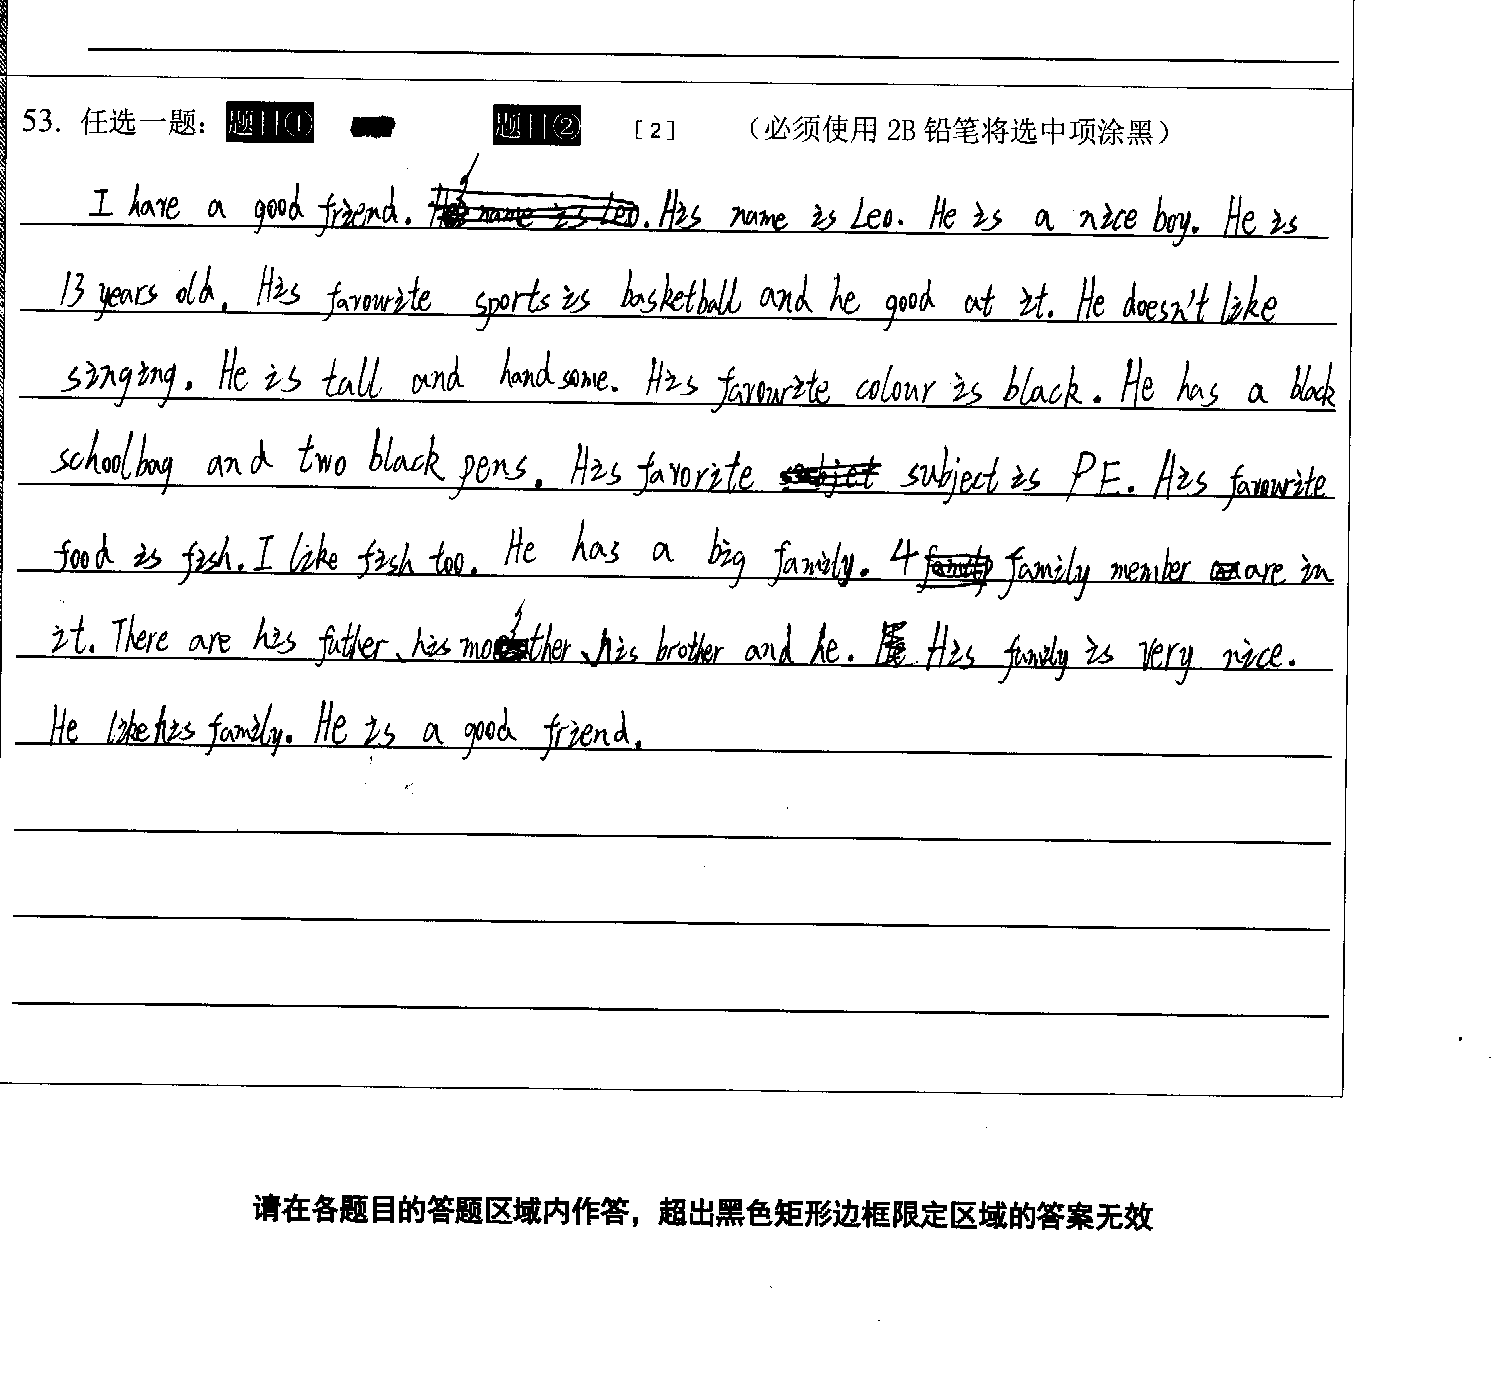 53. 任选一题： 题目① 题目② [2] （必须使用 2B 铅笔将选中项涂黑）
I have a good friend. His name is Leo. His name is Leo. He is a nice boy. He is
13 years old. His favourite sports is basketball and he good at it. He doesn't like
singing. He is tall and handsome. His favourite colour is black. He has a black
schoolbag and two black pens. His favorite subjet subject is PE. His favourite
food is fish. I like fish too. He has a big family. 4 family member are in
it. There are his father、his mother、his brother and he. His family is very nice.
He like his family. He is a good friend.
请在各题目的答题区域内作答，超出黑色矩形边框限定区域的答案无效